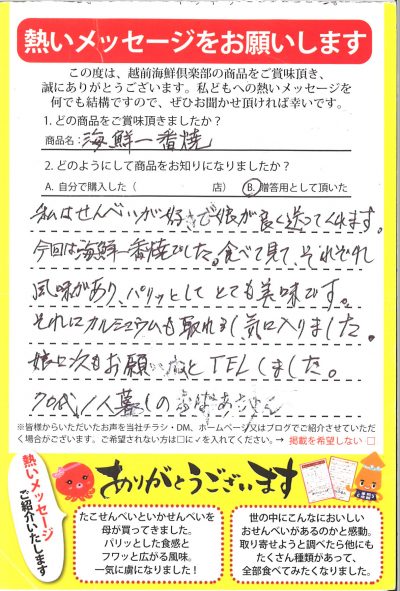 熱いメッセージをお願いします
この度は、越前海鮮倶楽部の商品をご賞味頂き、
誠にありがとうございます。私どもへの熱いメッセージを
何でも結構ですので、ぜひお聞かせ頂ければ幸いです。
1. どの商品をご賞味頂きましたか?
商品名: 海鮮一番焼
2. どのようにして商品をお知りになりましたか?
A. 自分で購入した ( 店) B. 贈答用として頂いた
私はせんべいが好きで娘が良く送ってくれます。
今回は海鮮一番焼でした。食べて見て、それぞれ
風味があり、パリッとしてとても美味です。
それにカルシュウムも取れるし気に入りました。
娘に次もお願いとTELしました。
70代1人暮しの
※皆様からいただいたお声を当社チラシ・DM、ホームページ又はブログでご紹介させていただ
く場合がございます。ご希望されない方は□に✓を入れてください。→ 掲載を希望しない □
熱いメッセージ
ご紹介いたします
ありがとうございます
たこせんべいといかせんべいを
母が買ってきました。
パリッとした食感と
フワッと広がる風味。
一気に虜になりました!
世の中にこんなにおいしい
おせんべいがあるのかと感動。
取り寄せようと調べたら他にも
たくさん種類があって、
全部食べてみたくなりました。